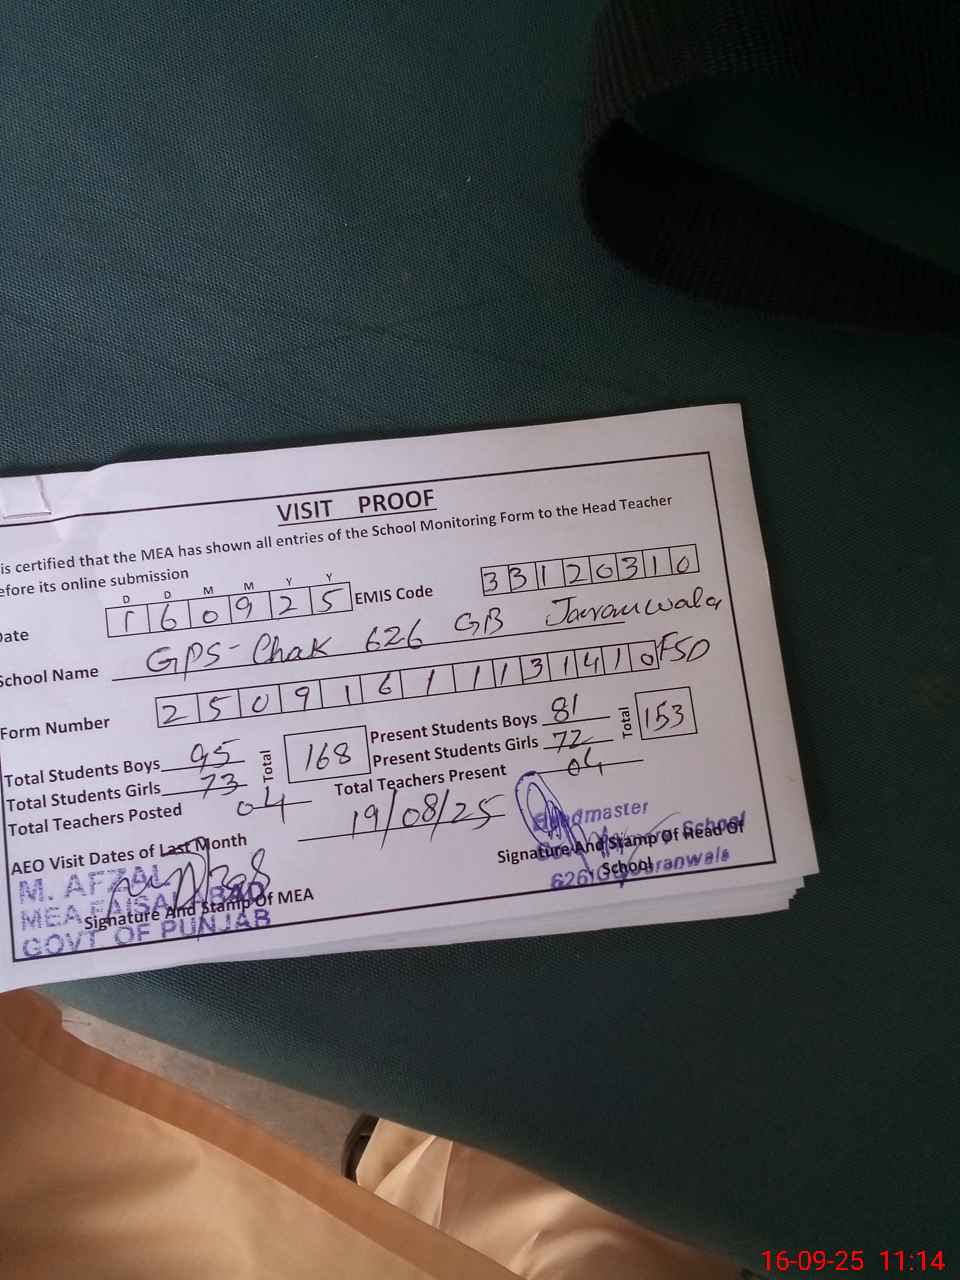 VISIT PROOF
is certified that the MEA has shown all entries of the School Monitoring Form to the Head Teacher
efore its online submission
D D M M Y Y
Date 160925 EMIS Code 33120310
School Name GPS-Chak 626 GB Jaranwala FSD
Form Number 25091611131410
Total Students Boys 95 Total 168 Present Students Boys 81 Total 153
Total Students Girls 73 Present Students Girls 72
Total Teachers Posted 04 Total Teachers Present 04
AEO Visit Dates of Last Month 19/08/25
M. AFZAL
MEA FAISALABAD
GOVT. OF PUNJAB
Signature And Stamp Of MEA
Headmaster
School
Signature And Stamp Of Head Of
School
626 Jaranwala
16-09-25 11:14